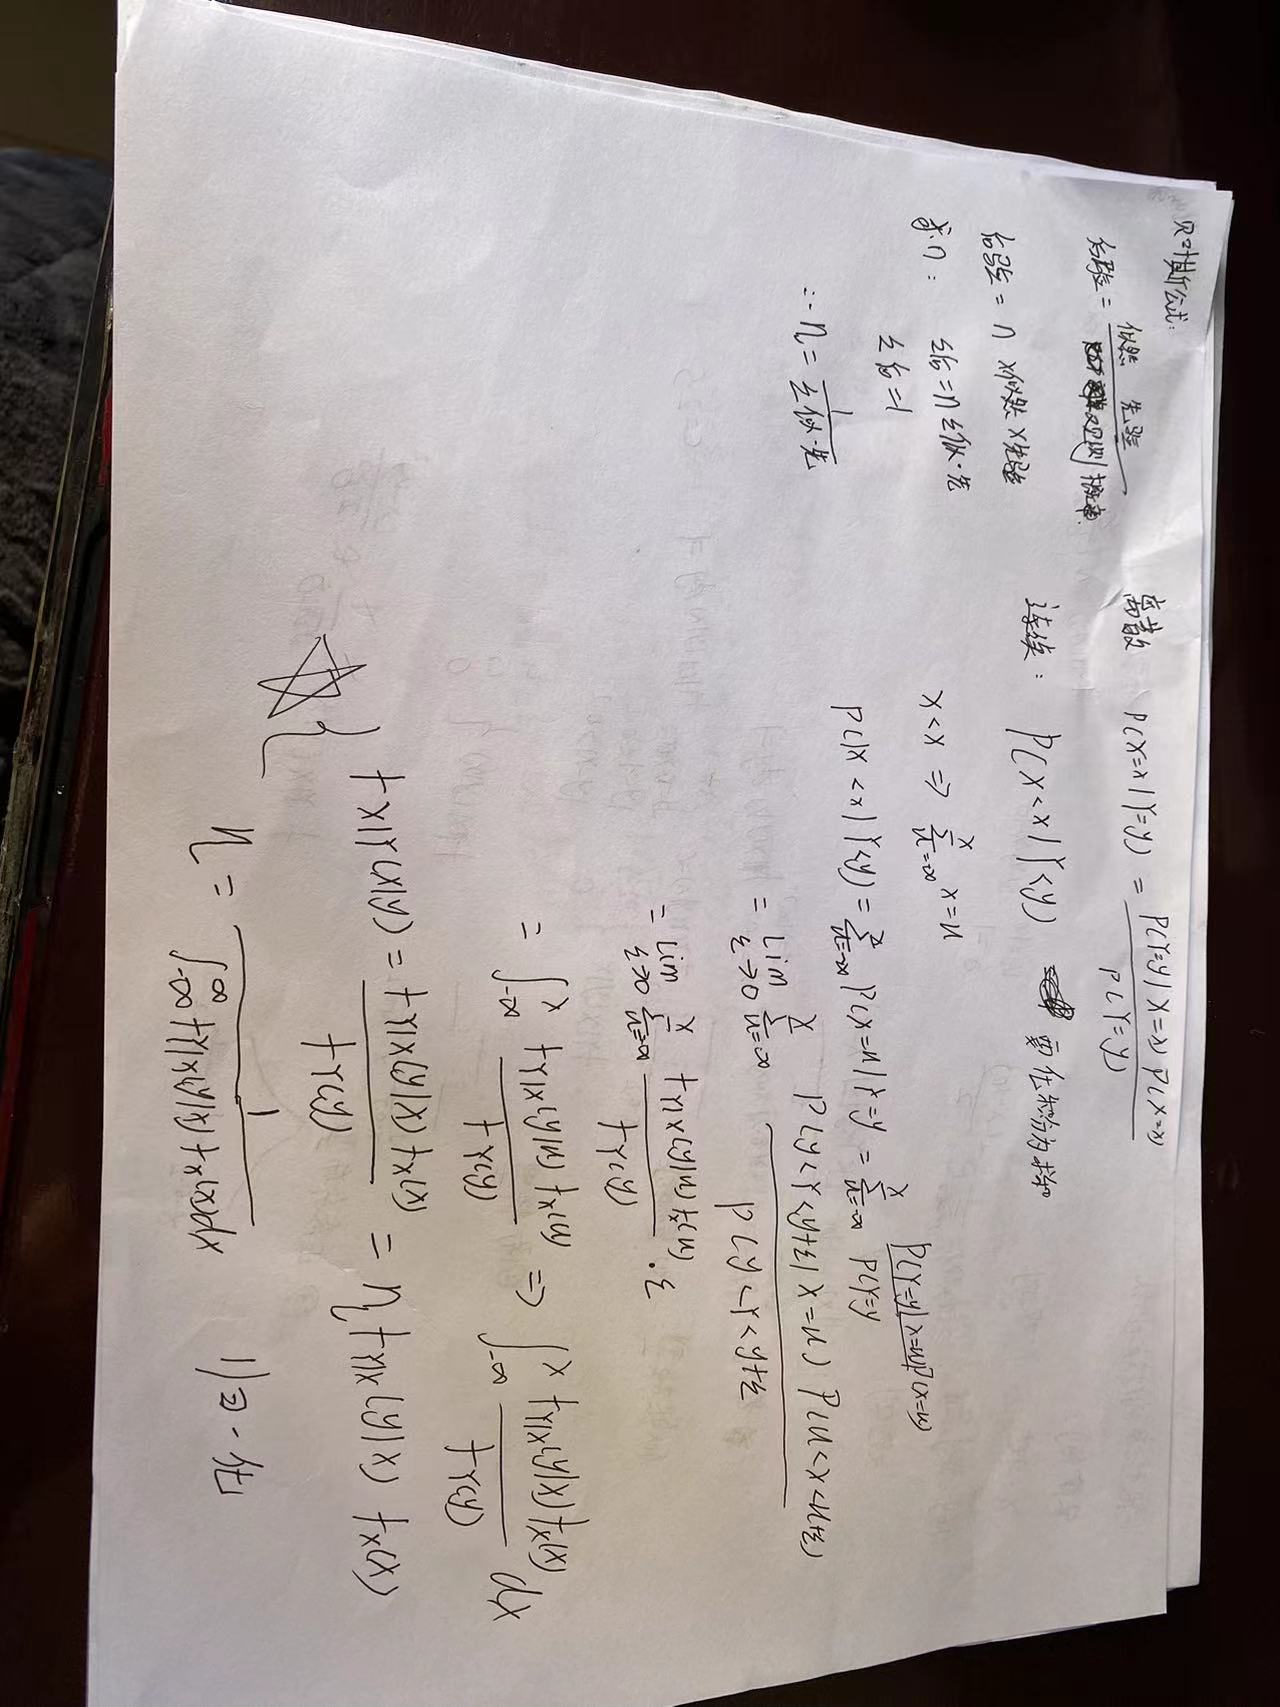 贝叶斯公式:
后验 = 似然 先验 / 观测概率
后验 = η × 似然 × 先验
求η: Σ后 = η Σ似·先
Σ后 = 1
∴ η = 1 / Σ似·先
离散 P(X=x|Y=y) = P(Y=y|X=x) P(X=x) / P(Y=y)
连续: P(X<x|Y<y) 要化积分为求和
X<x ⇒ Σ_{u=-∞}^{x} X=u
P(X<x|Y<y) = Σ_{u=-∞}^{x} P(X=u|Y=y = Σ_{u=-∞}^{x} P(Y=y|X=u)P(X=u) / P(Y=y
= Lim_{ε→0} Σ_{u=-∞}^{x} P(y<Y<y+ε|X=u) P(u<X<u+ε) / P(y<Y<y+ε
= Lim_{ε→0} Σ_{u=-∞}^{x} f_{Y|X}(y|u) f_X(u) / f_Y(y) · ε
= ∫_{-∞}^{x} f_{Y|X}(y|u) f_X(u) / f_Y(y) ⇒ ∫_{-∞}^{x} f_{Y|X}(y|x) f_X(x) / f_Y(y) dx
f_{X|Y}(x|y) = f_{Y|X}(y|x) f_X(x) / f_Y(y) = η f_{Y|X}(y|x) f_X(x)
η = 1 / ∫_{-∞}^{∞} f_{Y|X}(y|x) f_X(x)dx 归一化